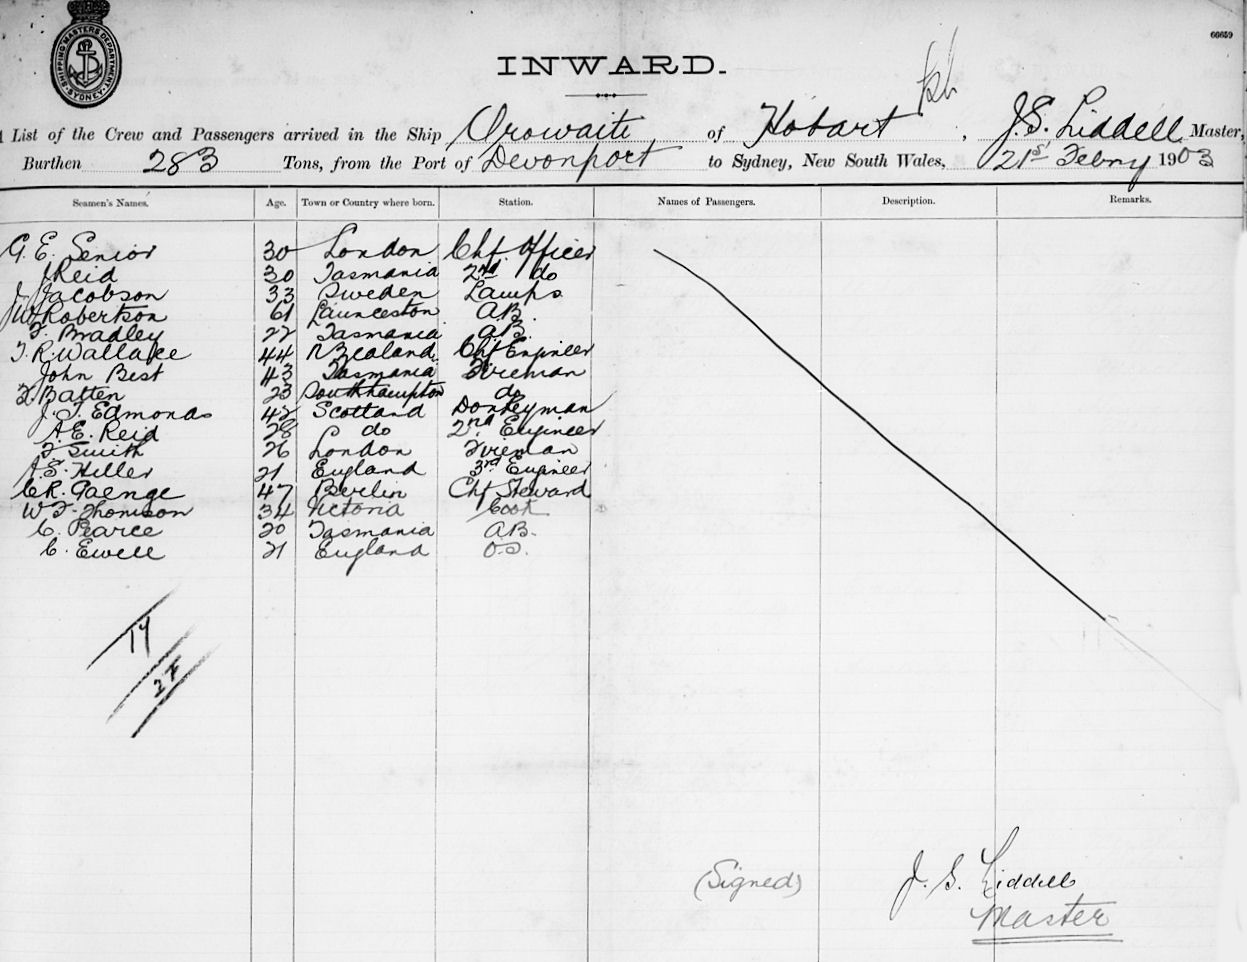 SHIPPING MASTERS DEPARTMENT SYDNEY
66659
INWARD.
List of the Crew and Passengers arrived in the Ship Orowaiti of Hobart, J. S. Liddell Master,
Burthen 283 Tons, from the Port of Devonport to Sydney, New South Wales, 21st Febry 1903
Seamen's Names. Age. Town or Country where born. Station. Names of Passengers. Description. Remarks.
G. E. Senior 30 London Chf. Officer
J Reid 30 Tasmania 2nd do
J. Jacobson 33 Sweden Lamps
Robertson 61 Launceston A.B.
F. Bradley 22 Tasmania A.B.
T. R. Wallace 44 N Zealand Chf Engineer
John Best 43 Tasmania Fireman
F. Batten 23 Southhampton do
J. T. Edmonds 42 Scotland Donkeyman
A. E. Reid 28 do 2nd Engineer
F Smith 26 London Fireman
A. S. Hiller 21 England 3rd Engineer
C. R. Gaenge 47 Berlin Chf Steward
W. F. Thomson 34 Victoria Cook
C. Pearce 20 Tasmania A.B.
C. Ewell 21 England O.S.
17
27
(Signed) J. S. Liddell
Master